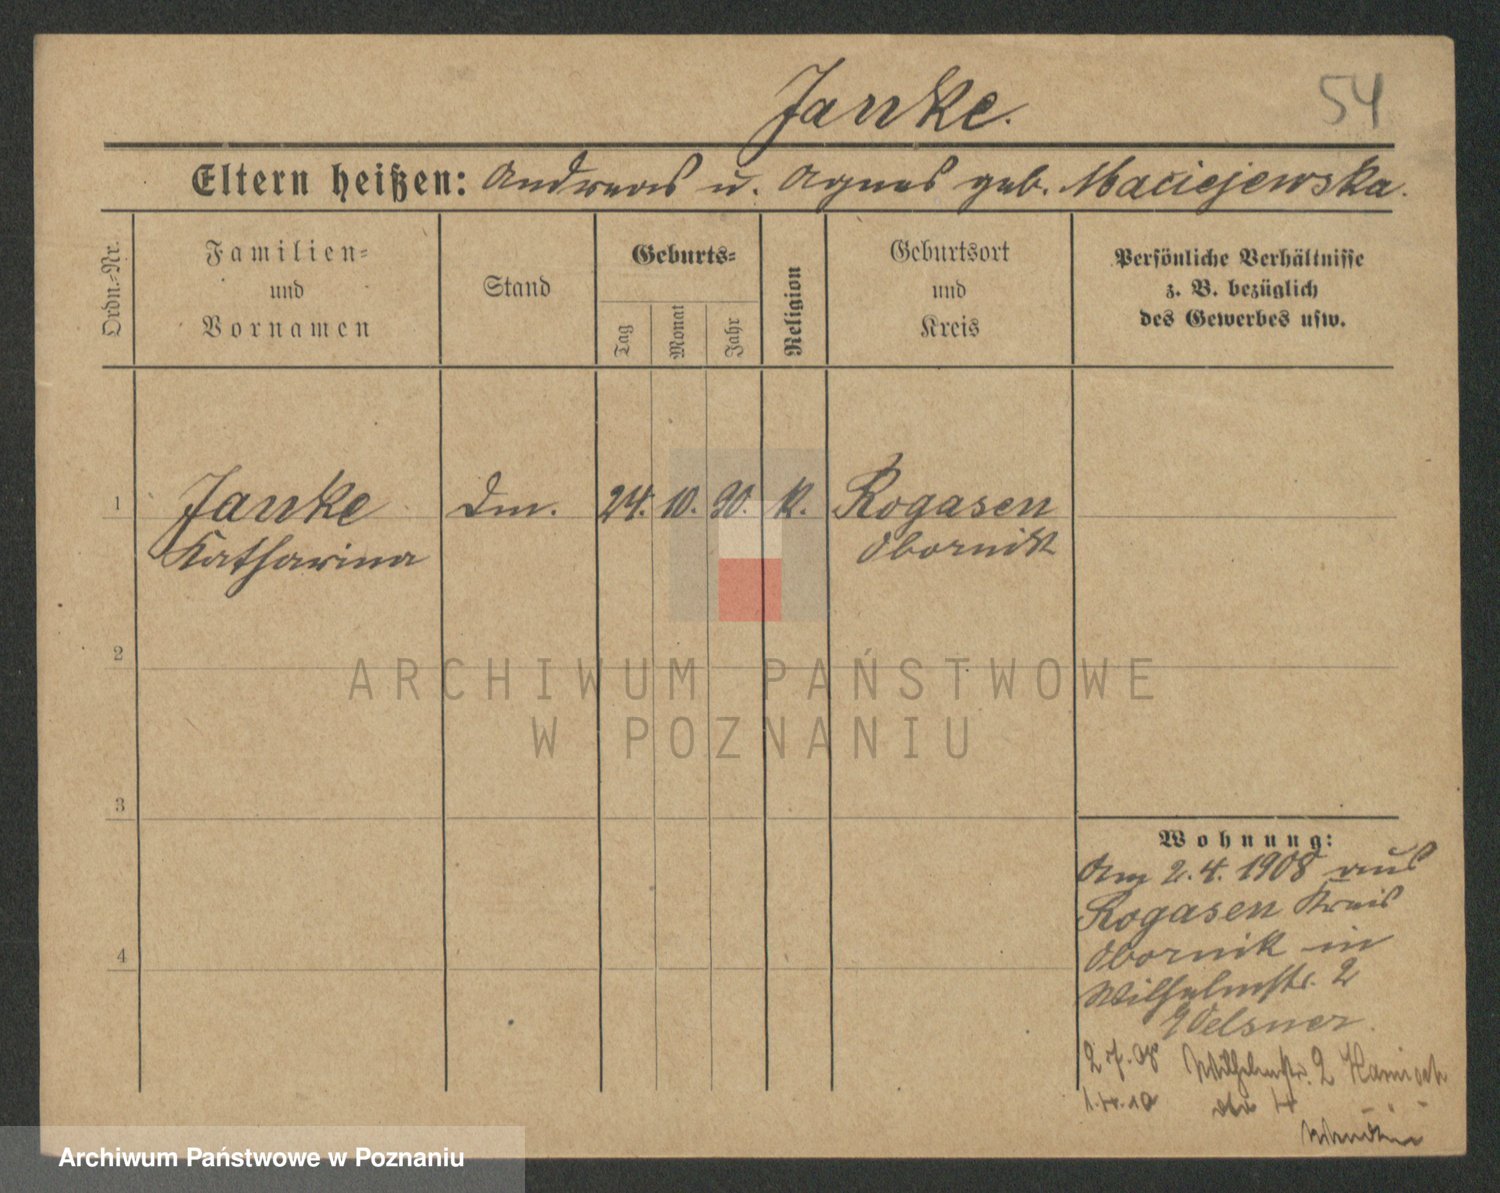 Janke.
54
Eltern heißen: Andreas u. Agnes geb. Maciejewska.
Ordn.-Nr.
Familien-
und
Vornamen
Stand
Geburts-
Tag
Monat
Jahr
Religion
Geburtsort
und
Kreis
Persönliche Verhältnisse
z. B. bezüglich
des Gewerbes usw.
1
Janke
Katharina
Dm.
24.
10.
90.
K.
Rogasen
Obornik
2
ARCHIWUM PAŃSTWOWE
W POZNANIU
3
4
Wohnung:
Am 2. 4. 1908 aus
Rogasen Kreis
Obornik in
Wilhelmstr. 2
Wilhelmstr. 2
Archiwum Państwowe w Poznaniu